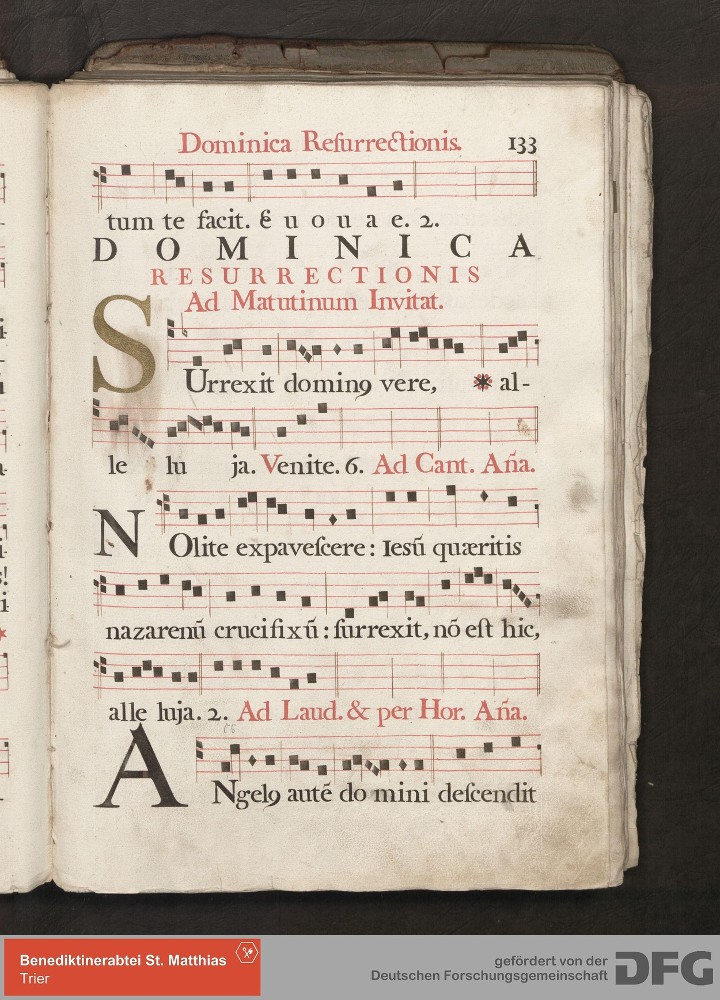 Dominica Reſurrectionis. 133
tum te facit. E u o u a e. 2.
DOMINICA
RESURRECTIONIS
Ad Matutinum Invitat.
SUrrexit dominꝰ vere, * al-
le lu ja. Venite. 6. Ad Cant. Aña.
NOlite expaveſcere : Iesũ quæritis
nazarenũ crucifixũ : ſurrexit, nõ eſt hic,
alle luja. 2. Ad Laud. & per Hor. Aña.
ANgelꝰ autẽ do mini deſcendit
Benediktinerabtei St. Matthias
Trier
gefördert von der
Deutschen Forschungsgemeinschaft
DFG